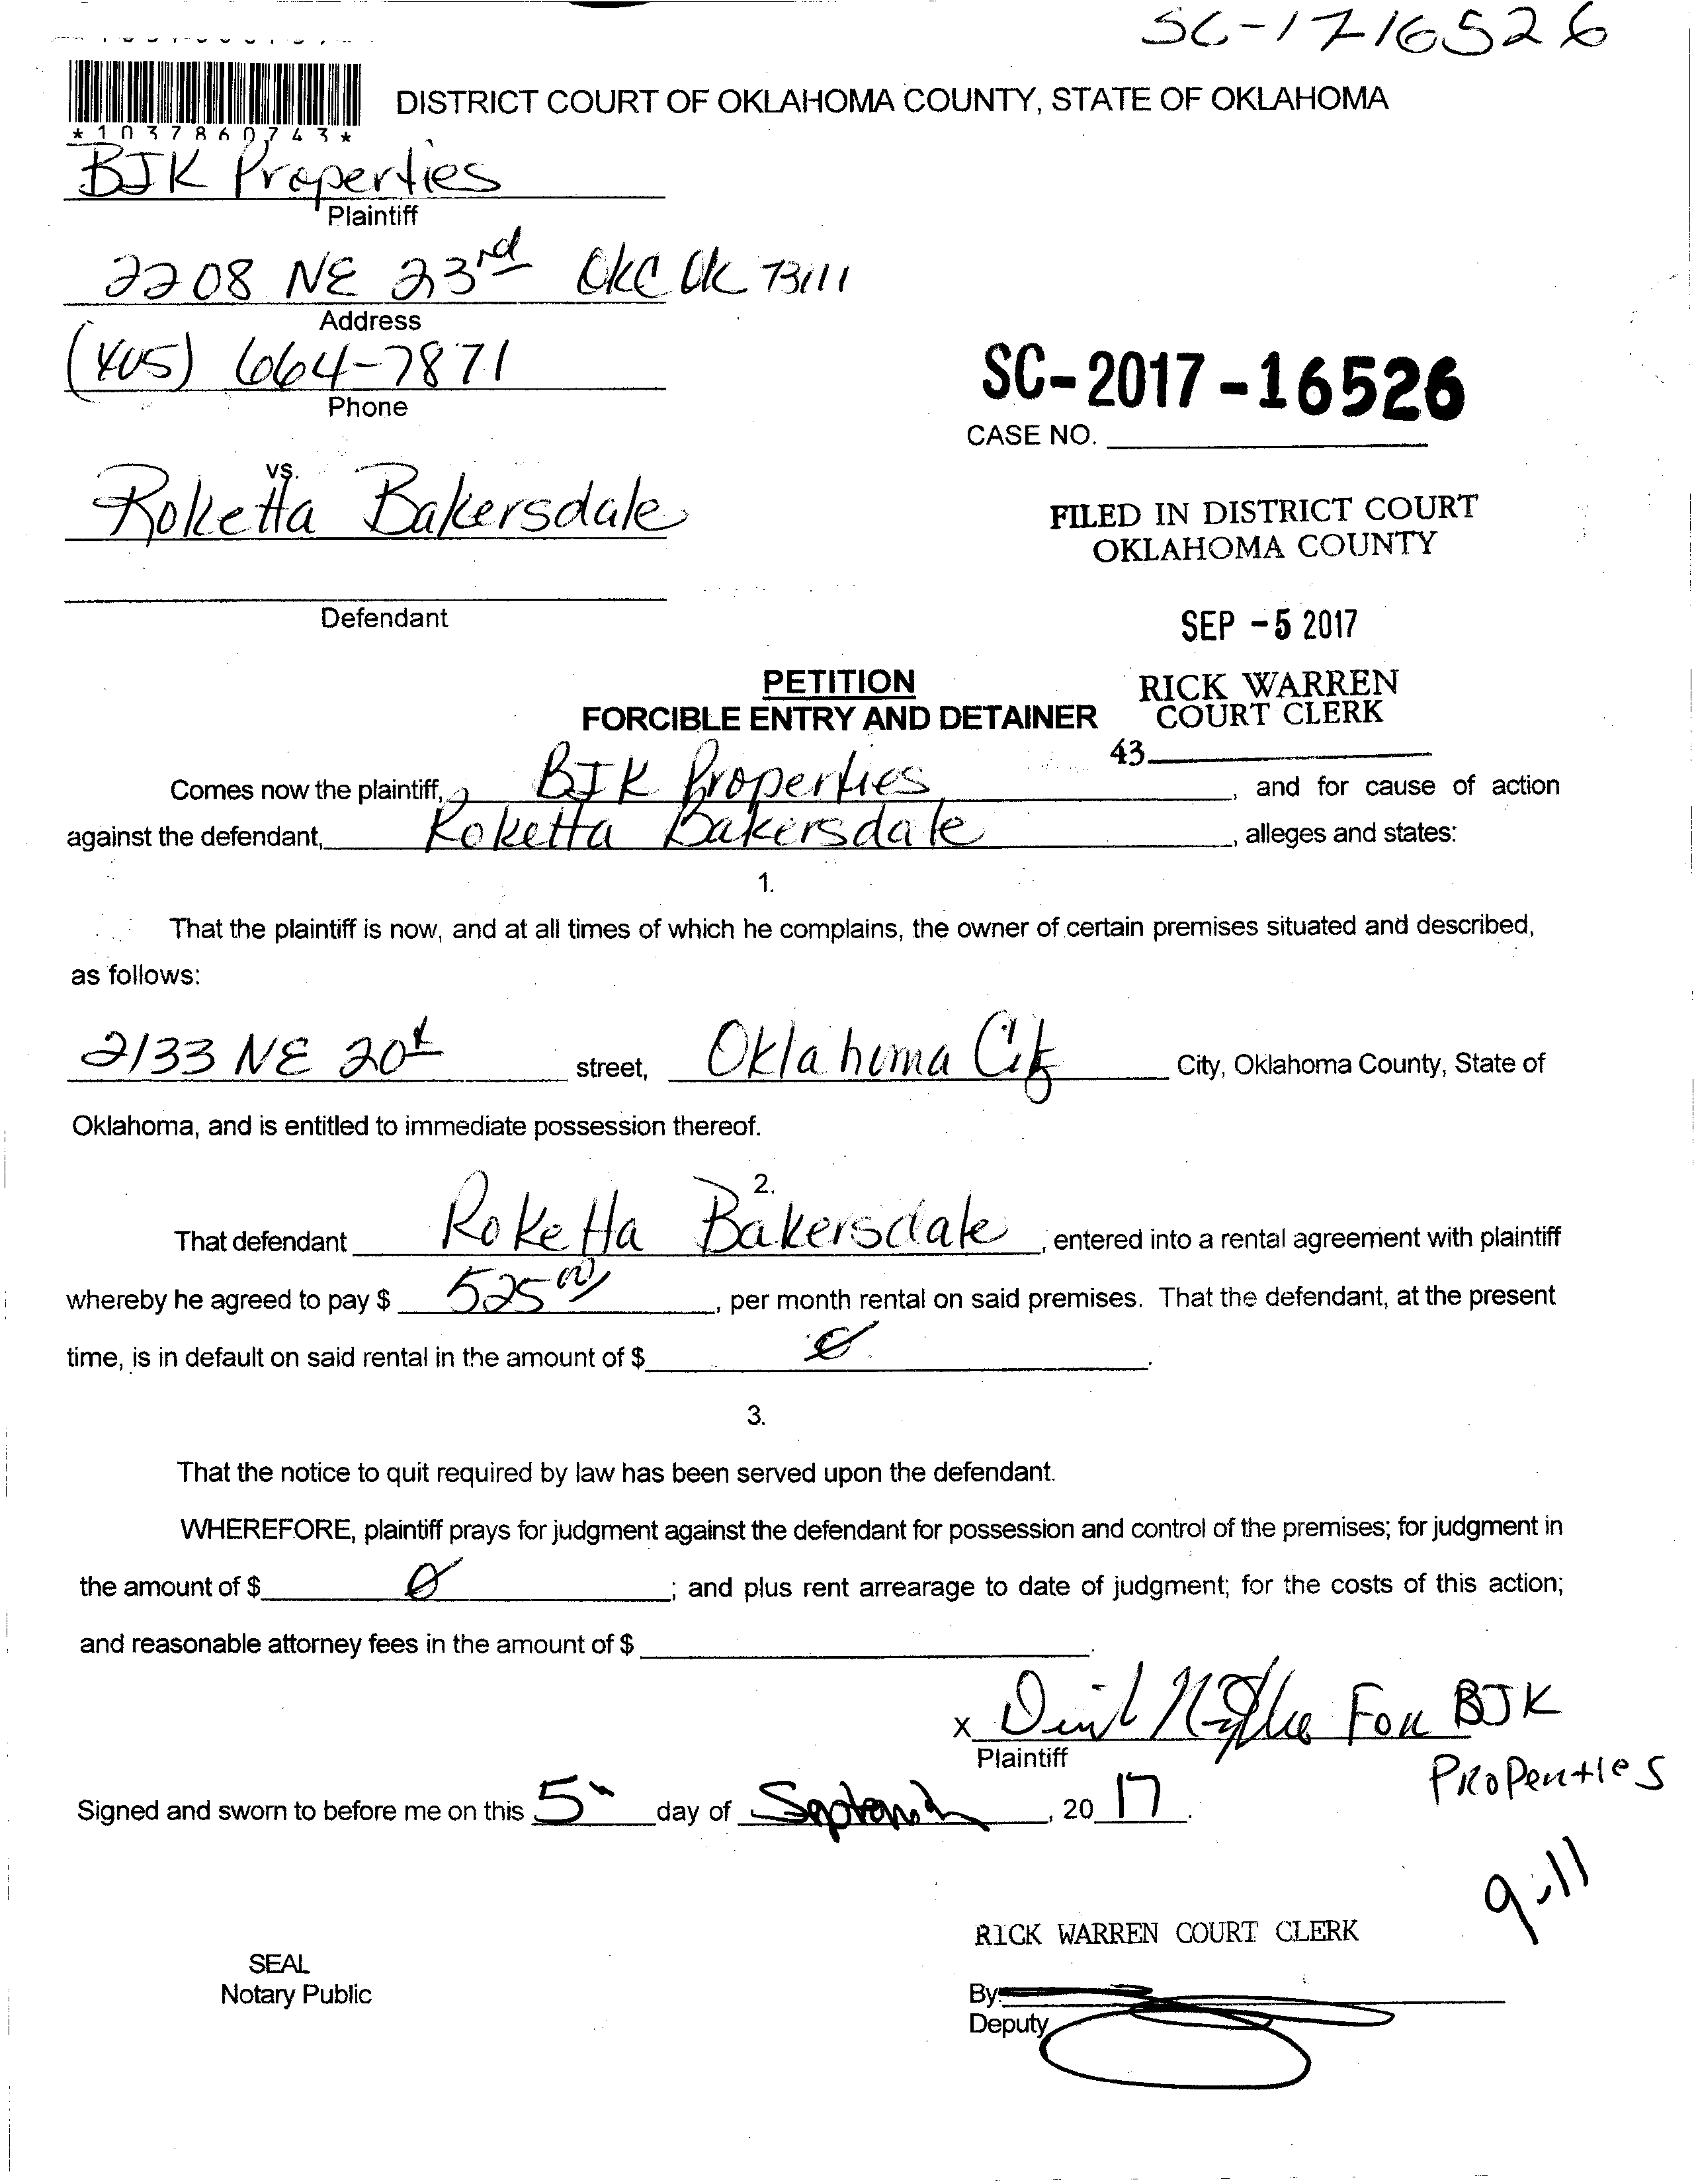 SC-1716526
*1037860743*
DISTRICT COURT OF OKLAHOMA COUNTY, STATE OF OKLAHOMA
BJK Properties
Plaintiff
2208 NE 23rd OKC OK 73111
Address
(405) 664-7871
Phone
SC-2017-16526
CASE NO.
vs.
Roketta Bakersdale
FILED IN DISTRICT COURT
OKLAHOMA COUNTY
Defendant
SEP -5 2017
PETITION
FORCIBLE ENTRY AND DETAINER
RICK WARREN
COURT CLERK
43
Comes now the plaintiff, BJK Properties, and for cause of action
against the defendant, Roketta Bakersdale, alleges and states:
1.
That the plaintiff is now, and at all times of which he complains, the owner of certain premises situated and described,
as follows:
2133 NE 20th street, Oklahoma City City, Oklahoma County, State of
Oklahoma, and is entitled to immediate possession thereof.
2.
That defendant Roketta Bakersdale, entered into a rental agreement with plaintiff
whereby he agreed to pay $ 525 00, per month rental on said premises. That the defendant, at the present
time, is in default on said rental in the amount of $ Ø.
3.
That the notice to quit required by law has been served upon the defendant.
WHEREFORE, plaintiff prays for judgment against the defendant for possession and control of the premises; for judgment in
the amount of $ Ø; and plus rent arrearage to date of judgment; for the costs of this action;
and reasonable attorney fees in the amount of $ .
x For BJK
Plaintiff
Properties
Signed and sworn to before me on this 5th day of September, 20 17.
9-11
RICK WARREN COURT CLERK
SEAL
Notary Public
By:
Deputy